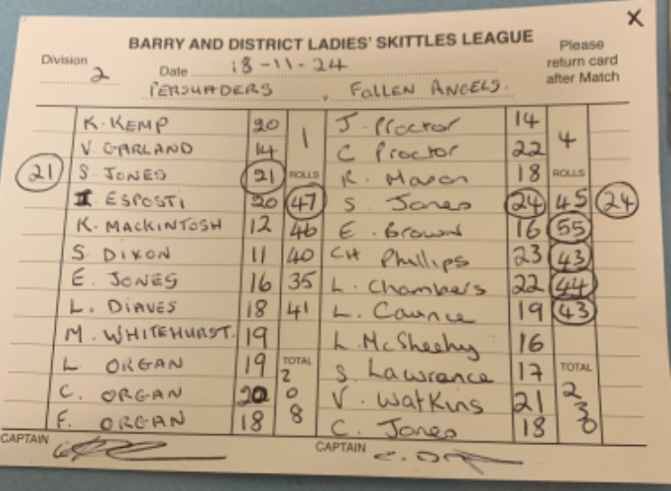 X
BARRY AND DISTRICT LADIES' SKITTLES LEAGUE
Please return card after Match
Division 2 Date 18-11-24
PERSUADERS v FALLEN ANGELS.
K. KEMP 20 1 J. Proctor 14 4
V GARLAND 14 C Proctor 22
21 S JONES 21 ROLLS R. Mason 18 ROLLS
I ESPOSTI 20 47 S. Jones 24 45 24
K. MACKINTOSH 12 46 E. Brown 16 55
S DIXON 11 40 CH Phillips 23 43
E. JONES 16 35 L. Chambers 22 44
L. DIAVES 18 41 L. Caunce 19 43
M. WHITEHURST. 19 L. McSheehy 16
L ORGAN 19 TOTAL S. Lawrance 17 TOTAL
C. ORGAN 20 208 V. Watkins 21 230
F. ORGAN 18 C. Jones 18
CAPTAIN CAPTAIN